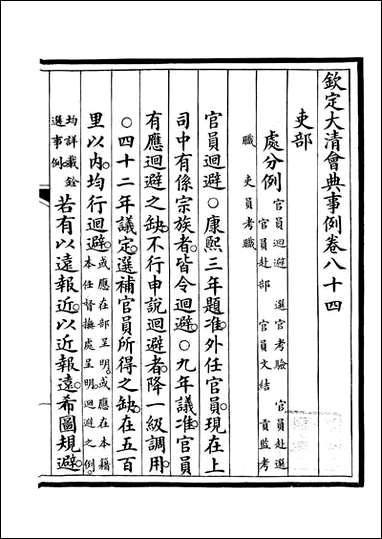 欽定大清會典事例卷八十四
吏部
處分例官員迴避　選官考驗　官員赴選
官員赴部　官員文結　貢監考
職　吏員考職
官員迴避○康熙三年題准外任官員現在上
司中有係宗族者皆令迴避○九年議准官員
有應迴避之缺不行申說迴避者降一級調用
○四十二年議定選補官員所得之缺在五百
里以內均行迴避或應在部呈明或應在本籍
本任督撫處呈明迴避之例
均詳載銓
選事例若有以遠報近以近報遠希圖規避